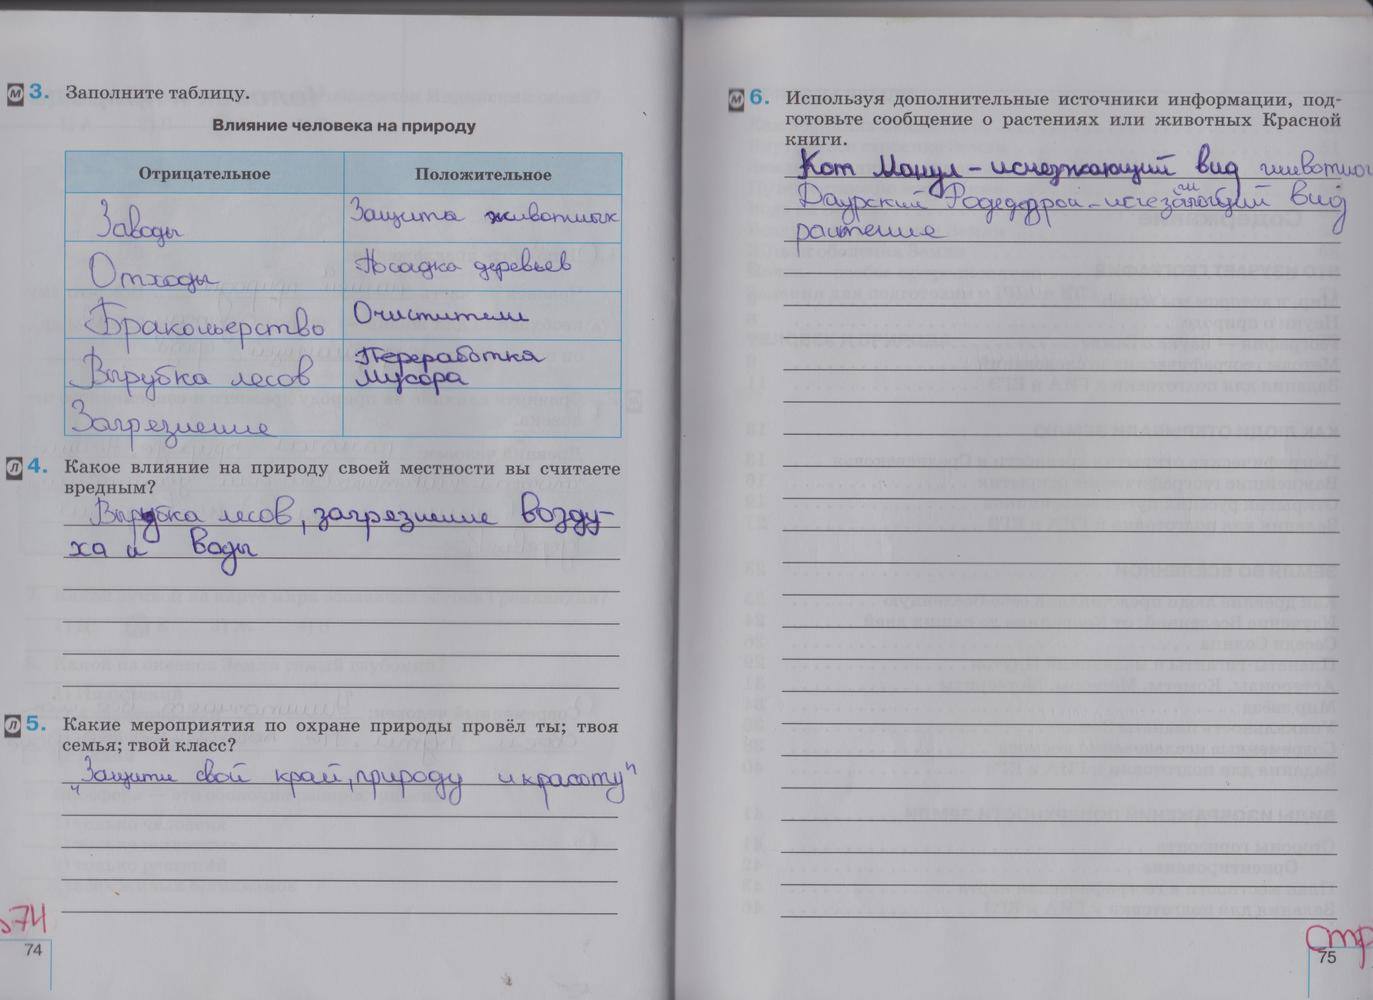 М 3. Заполните таблицу.
Влияние человека на природу
Отрицательное Положительное
Заводы Защита животных
Отходы Посадка деревьев
Бракольерство Очистители
Вырубка лесов Переработка
мусора
Загрезнение
Л 4. Какое влияние на природу своей местности вы считаете
вредным?
Вырубка лесов, загрезнение возду-
ха и воды
Л 5. Какие мероприятия по охране природы провёл ты; твоя
семья; твой класс?
"Защити свой край, природу и красоту"
74
74
М 6. Используя дополнительные источники информации, под-
готовьте сообщение о растениях или животных Красной
книги.
Кот Манул – исчезжающий вид животног
Даурский – вид
растение
стр
75